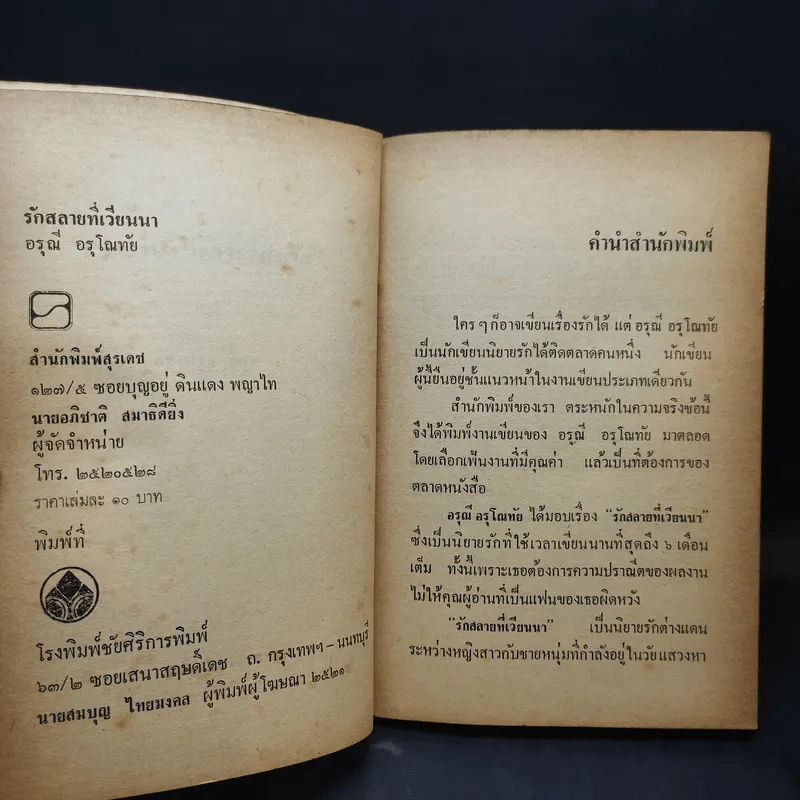 รักสลายที่เวียนนา
อรุณี อรุโณทัย
สำนักพิมพ์สุรเดช
๑๒๗/๕ ซอยบุญอยู่ ดินแดง พญาไท
นายอภิชาติ สมาธิดียิ่ง
ผู้จัดจำหน่าย
โทร. ๒๕๒๐๕๒๘
ราคาเล่มละ ๑๐ บาท
พิมพ์ที่
โรงพิมพ์ชัยศิริการพิมพ์
๖๓/๒ ซอยเสนาสฤษดิ์เดช ถ. กรุงเทพฯ – นนทบุรี
นายสมบุญ ไทยมงคล ผู้พิมพ์ผู้โฆษณา ๒๕๒๑
คำนำสำนักพิมพ์
ใคร ๆ ก็อาจเขียนเรื่องรักได้ แต่ อรุณี อรุโณทัย
เป็นนักเขียนนิยายรักได้ติดตลาดคนหนึ่ง นักเขียน
ผู้นี้ยืนอยู่ชั้นแนวหน้าในงานเขียนประเภทเดียวกัน
สำนักพิมพ์ของเรา ตระหนักในความจริงข้อนี้
จึงได้พิมพ์งานเขียนของ อรุณี อรุโณทัย มาตลอด
โดยเลือกเฟ้นงานที่มีคุณค่า แล้วเป็นที่ต้องการของ
ตลาดหนังสือ
อรุณี อรุโณทัย ได้มอบเรื่อง “รักสลายที่เวียนนา”
ซึ่งเป็นนิยายรักที่ใช้เวลาเขียนนานที่สุดถึง ๖ เดือน
เต็ม ทั้งนี้เพราะเธอต้องการความปราณีตของผลงาน
ไม่ให้คุณผู้อ่านที่เป็นแฟนของเธอผิดหวัง
“รักสลายที่เวียนนา” เป็นนิยายรักต่างแดน
ระหว่างหญิงสาวกับชายหนุ่มที่กำลังอยู่ในวัยแสวงหา